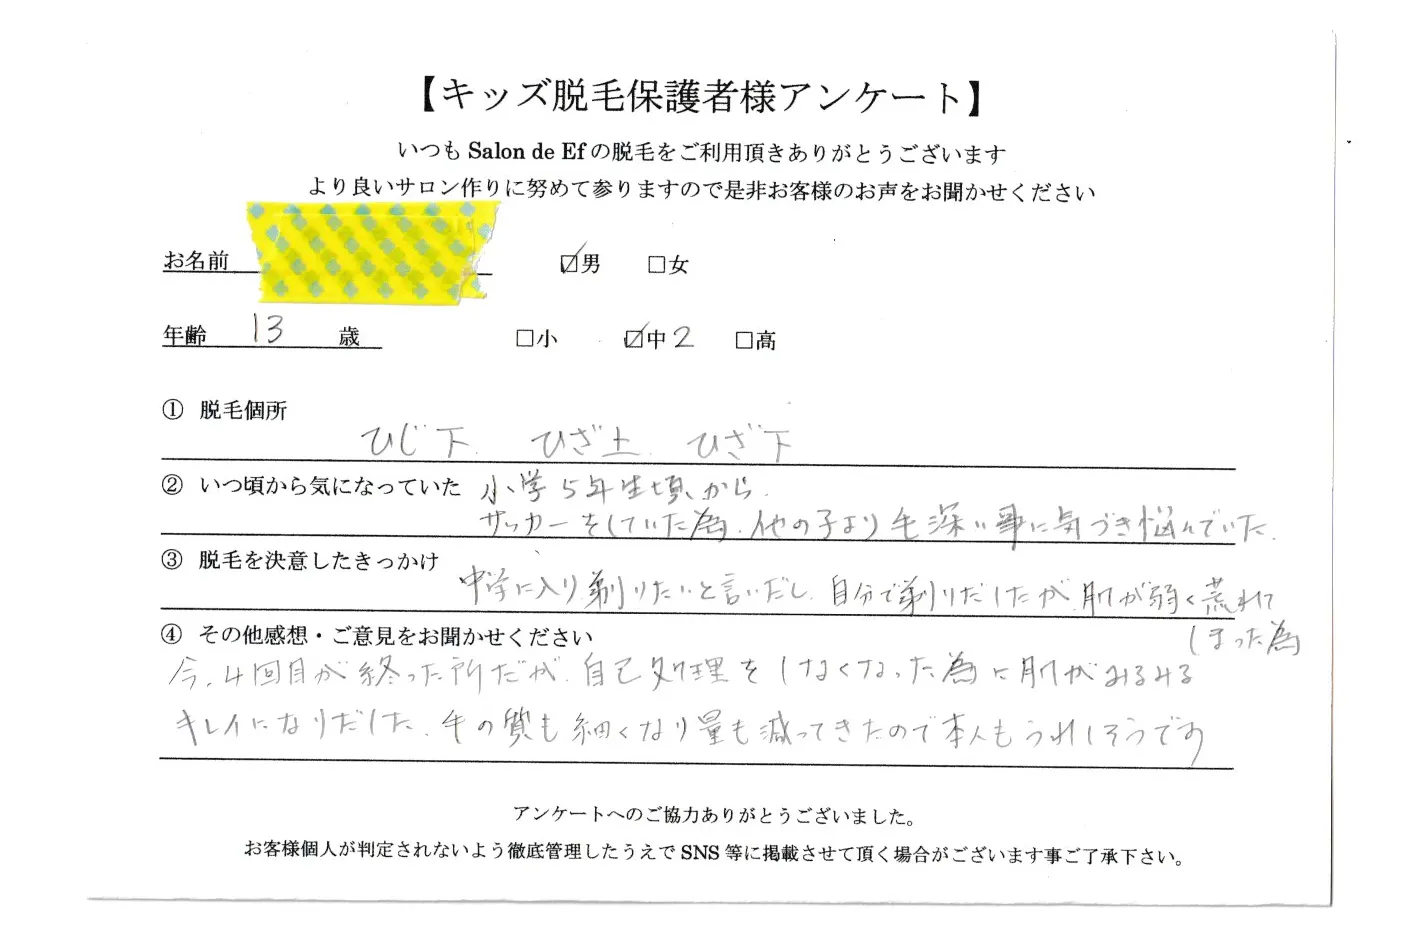 【キッズ脱毛保護者様アンケート】
いつも Salon de Ef の脱毛をご利用頂きありがとうございます
より良いサロン作りに努めて参りますので是非お客様のお声をお聞かせください
お名前 ☑男 □女
年齢 13 歳 □小 ☑中2 □高
① 脱毛個所
ひじ下. ひざ上. ひざ下
② いつ頃から気になっていた 小学5年生頃から.
サッカーをしていた為、他の子より毛深い事に気づき悩んでいた.
③ 脱毛を決意したきっかけ
中学に入り剃りたいと言いだし、自分で剃りだしたが、肌が弱く荒れて
しまった為
④ その他感想・ご意見をお聞かせください
今、4回目が終った所だが、自己処理をしなくなった為に肌がみるみる
キレイになりだした、毛の質も細くなり量も減ってきたので本人もうれしそうです
アンケートへのご協力ありがとうございました。
お客様個人が判定されないよう徹底管理したうえで SNS 等に掲載させて頂く場合がございます事ご了承下さい。